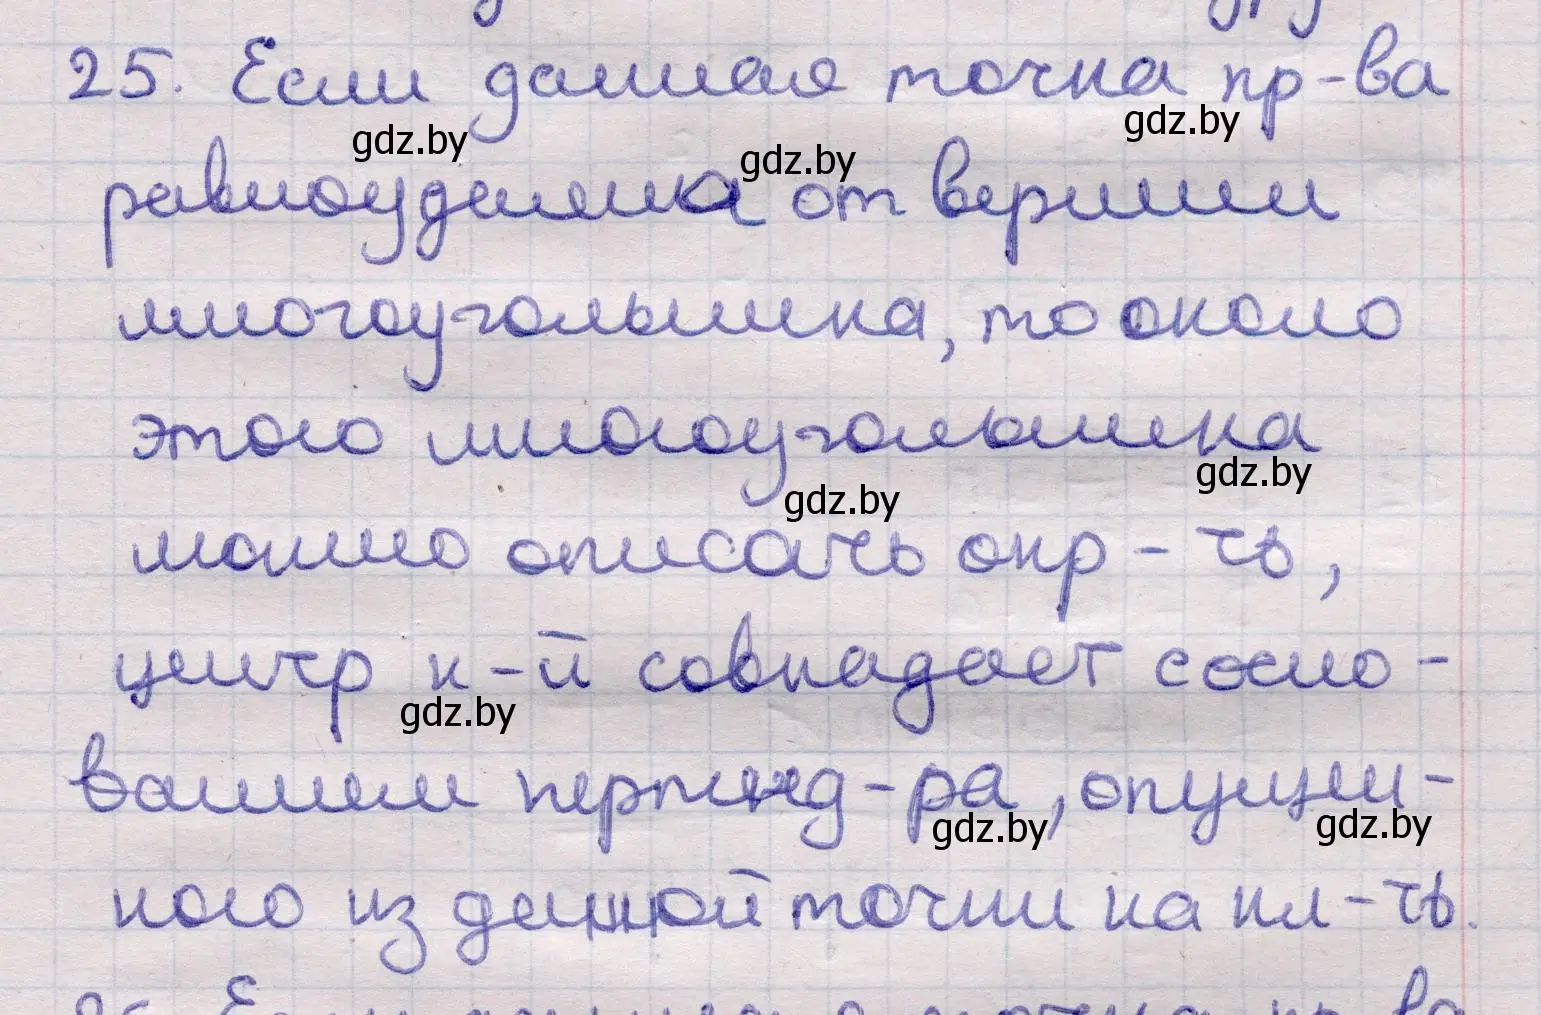 25. Если данная точка пр-ва
равноудалена от вершин
многоугольника, то около
этого многоугольника
можно описать окр-ть,
центр к-й совпадает с осно-
ванием перпенд-ра, опущен-
ного из данной точки на пл-ть.
gdz.by
gdz.by
gdz.by
gdz.by
gdz.by
gdz.by
gdz.by
gdz.by